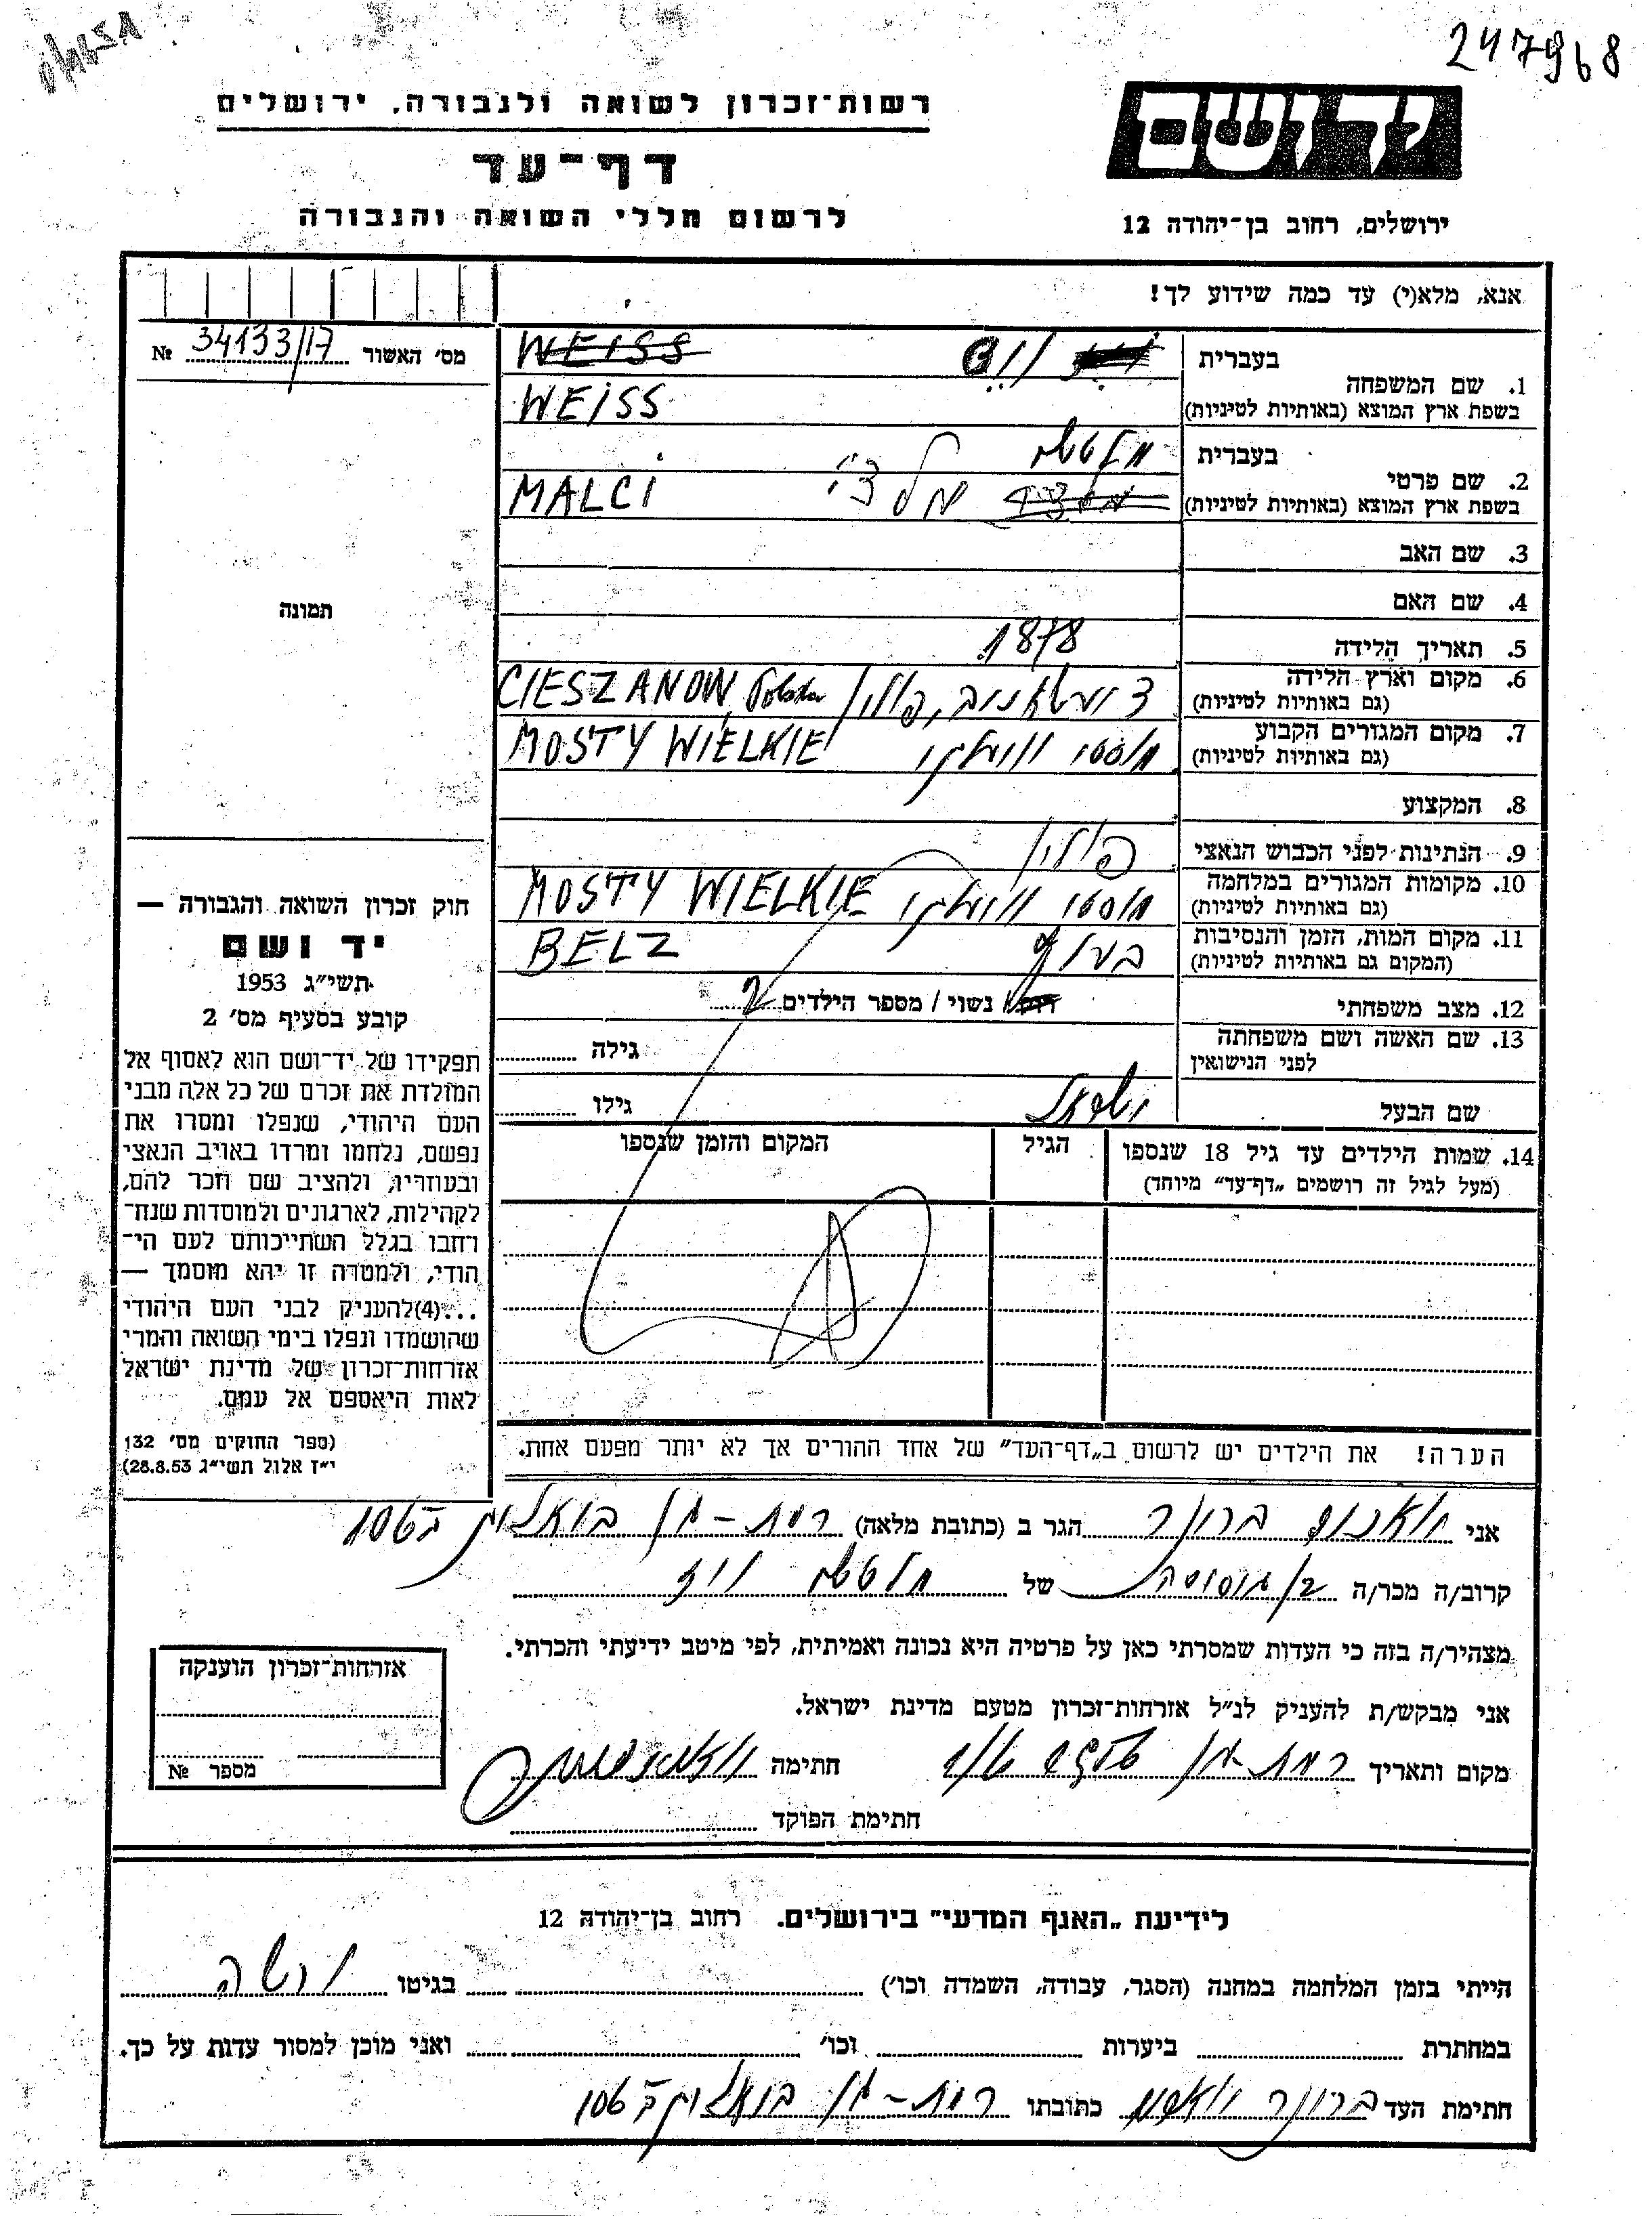 247968
יד ושם
ירושלים, רחוב בן־יהודה 12
רשות־זכרון לשואה ולגבורה, ירושלים
דף־עד
לרשום חללי השואה והגבורה
אנא, מלא(י) עד כמה שידוע לך!
מס׳ האשור 34133/17 №
תמונה
1. שם המשפחה
בעברית
WEISS
בשפת ארץ המוצא (באותיות לטיניות) WEISS
2. שם פרטי
בעברית
בשפת ארץ המוצא (באותיות לטיניות) מלצי MALCI
3. שם האב
4. שם האם
5. תאריך הלידה 1878
6. מקום וארץ הלידה
(גם באותיות לטיניות) פולין CIESZANOW, Polska
7. מקום המגורים הקבוע
(גם באותיות לטיניות) מוסטי ווילקי MOSTY WIELKIE
8. המקצוע
9. הנתינות לפני הכבוש הנאצי פולין
10. מקומות המגורים במלחמה
(גם באותיות לטיניות) מוסטי ווילקי MOSTY WIELKIE
11. מקום המות, הזמן והנסיבות
(המקום גם באותיות לטיניות) BELZ
12. מצב משפחתי נשוי / מספר הילדים 2
13. שם האשה ושם משפחתה
לפני הנישואין גילה
שם הבעל גילו
14. שמות הילדים עד גיל 18 שנספו
(מעל לגיל זה רושמים „דף־עד״ מיוחד)
הגיל
המקום והזמן שנספו
הערה! את הילדים יש לרשום ב„דף־העד״ של אחד ההורים אך לא יותר מפעם אחת.
חוק זכרון השואה והגבורה —
יד ושם
תשי״ג 1953
קובע בסעיף מס׳ 2
תפקידו של יד־ושם הוא לאסוף אל
המולדת את זכרם של כל אלה מבני
העם היהודי, שנפלו ומסרו את
נפשם, נלחמו ומרדו באויב הנאצי
ובעוזריו, ולהציב שם וזכר להם,
לקהילות, לארגונים ולמוסדות שנח־
רבו בגלל השתייכותם לעם הי־
הודי, ולמטרה זו יהא מוסמך —
...(4)להעניק לבני העם היהודי
שהושמדו ונפלו בימי השואה והמרי
אזרחות־זכרון של מדינת ישראל
לאות היאספם אל עמם.
(ספר החוקים מס׳ 132
י״ז אלול תשי״ג 28.8.53)
אני ברונר הגר ב (כתובת מלאה) רמת-גן 106
קרוב/ה מכר/ה של
מצהיר/ה בזה כי העדות שמסרתי כאן על פרטיה היא נכונה ואמיתית, לפי מיטב ידיעתי והכרתי.
אני מבקש/ת להעניק לנ״ל אזרחות־זכרון מטעם מדינת ישראל.
מקום ותאריך רמת-גן חתימה
חתימת הפוקד
אזרחות־זכרון הוענקה
מספר №
לידיעת „האגף המדעי״ בירושלים. רחוב בן־יהודה 12
הייתי בזמן המלחמה במחנה (הסגר, עבודה, השמדה וכו׳) בגיטו ורשה
במחתרת ביערות וכו׳ ואני מוכן למסור עדות על כך.
חתימת העד ברונר כתובתו רמת-גן 106